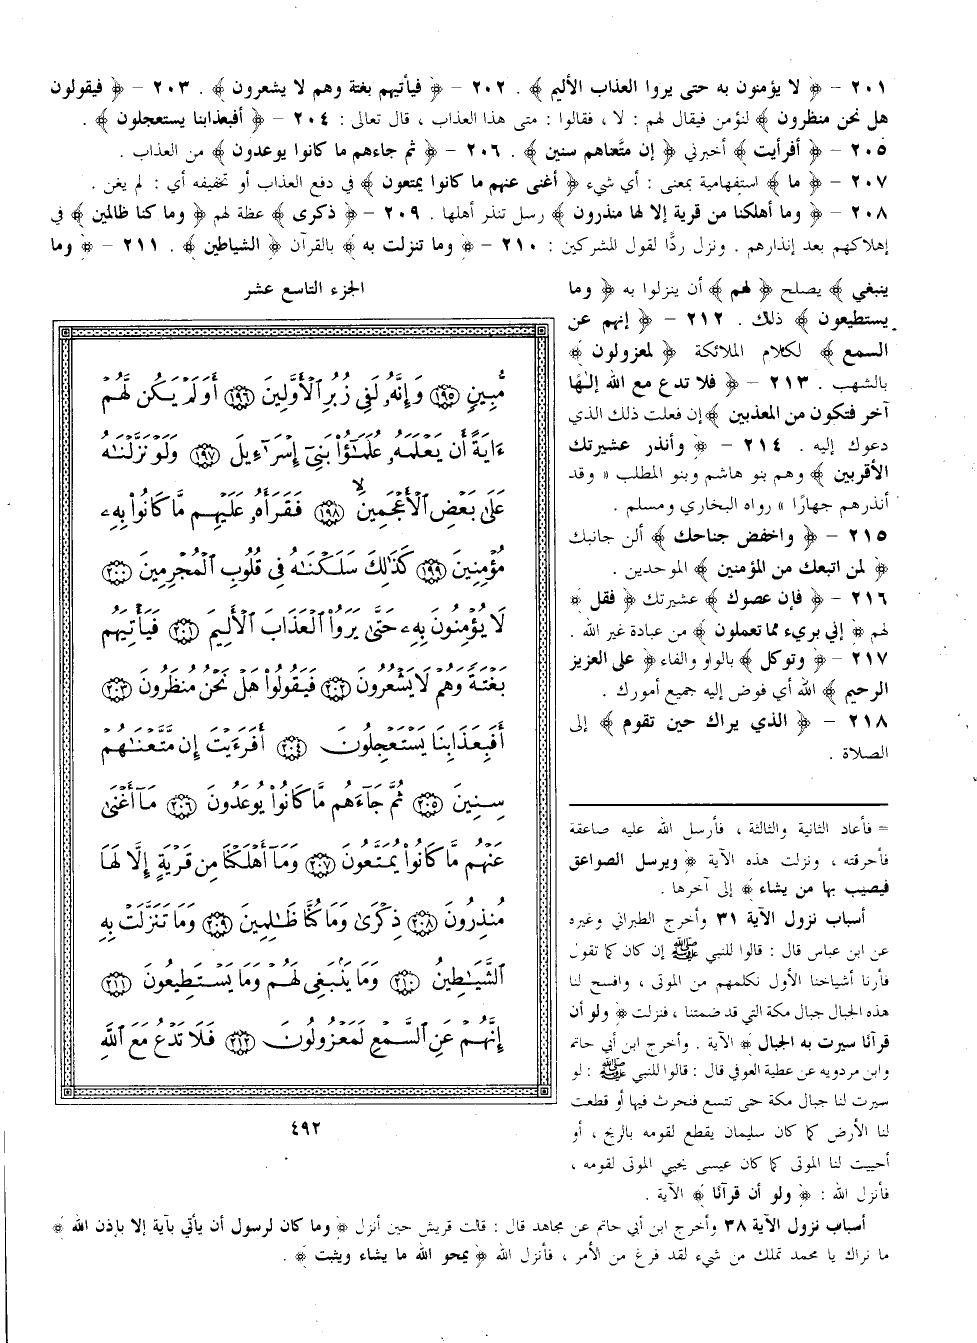 ٢٠١ - ﴿ لا يؤمنون به حتى يروا العذاب الأليم ﴾ . ٢٠٢ - ﴿ فيأتيهم بغتة وهم لا يشعرون ﴾ . ٢٠٣ - ﴿ فيقولون
هل نحن منظرون ﴾ لنؤمن فيقال لهم : لا ، فقالوا : متى هذا العذاب ، قال تعالى : ٢٠٤ - ﴿ أفبعذابنا يستعجلون ﴾ .
٢٠٥ - ﴿ أفرأيت ﴾ أخبرني ﴿ إن متَّعناهم سنين ﴾ . ٢٠٦ - ﴿ ثم جاءهم ما كانوا يوعدون ﴾ من العذاب .
٢٠٧ - ﴿ ما ﴾ استفهامية بمعنى : أي شيء ﴿ أغنى عنهم ما كانوا يمتعون ﴾ في دفع العذاب أو تخفيفه أي : لم يغن .
٢٠٨ - ﴿ وما أهلكنا من قرية إلا لها منذرون ﴾ رسل تنذر أهلها . ٢٠٩ - ﴿ ذكرى ﴾ عظة لهم ﴿ وما كنا ظالمين ﴾ في
إهلاكهم بعد إنذارهم . ونزل ردًّا لقول المشركين : ٢١٠ - ﴿ وما تنزلت به ﴾ بالقرآن ﴿ الشياطين ﴾ . ٢١١ - ﴿ وما
ينبغي ﴾ يصلح ﴿ لهم ﴾ أن ينزلوا به ﴿ وما
يستطيعون ﴾ ذلك . ٢١٢ - ﴿ إنهم عن
السمع ﴾ لكلام الملائكة ﴿ لمعزولون ﴾
بالشهب . ٢١٣ - ﴿ فلا تدع مع الله إلهًا
آخر فتكون من المعذبين ﴾ إن فعلت ذلك الذي
دعوك إليه . ٢١٤ - ﴿ وأنذر عشيرتك
الأقربين ﴾ وهم بنو هاشم وبنو المطلب « وقد
أنذرهم جهارًا » رواه البخاري ومسلم .
٢١٥ - ﴿ واخفض جناحك ﴾ ألن جانبك
﴿ لمن اتبعك من المؤمنين ﴾ الموحدين .
٢١٦ - ﴿ فإن عصوك ﴾ عشيرتك ﴿ فقل ﴾
لهم ﴿ إني بريء مما تعملون ﴾ من عبادة غير الله .
٢١٧ - ﴿ وتوكل ﴾ بالواو والفاء ﴿ على العزيز
الرحيم ﴾ الله أي فوض إليه جميع أمورك .
٢١٨ - ﴿ الذي يراك حين تقوم ﴾ إلى
الصلاة .
الجزء التاسع عشر
مُّبِينٍ ١٩٥ وَإِنَّهُۥ لَفِى زُبُرِ ٱلْأَوَّلِينَ ١٩٦ أَوَلَمْ يَكُن لَّهُمْ
ءَايَةً أَن يَعْلَمَهُۥ عُلَمَٰٓؤُا۟ بَنِىٓ إِسْرَٰٓءِيلَ ١٩٧ وَلَوْ نَزَّلْنَٰهُ
عَلَىٰ بَعْضِ ٱلْأَعْجَمِينَ ١٩٨ فَقَرَأَهُۥ عَلَيْهِم مَّا كَانُوا۟ بِهِۦ
مُؤْمِنِينَ ١٩٩ كَذَٰلِكَ سَلَكْنَٰهُ فِى قُلُوبِ ٱلْمُجْرِمِينَ ٢٠٠
لَا يُؤْمِنُونَ بِهِۦ حَتَّىٰ يَرَوُا۟ ٱلْعَذَابَ ٱلْأَلِيمَ ٢٠١ فَيَأْتِيَهُم
بَغْتَةً وَهُمْ لَا يَشْعُرُونَ ٢٠٢ فَيَقُولُوا۟ هَلْ نَحْنُ مُنظَرُونَ ٢٠٣
أَفَبِعَذَابِنَا يَسْتَعْجِلُونَ ٢٠٤ أَفَرَءَيْتَ إِن مَّتَّعْنَٰهُمْ
سِنِينَ ٢٠٥ ثُمَّ جَآءَهُم مَّا كَانُوا۟ يُوعَدُونَ ٢٠٦ مَآ أَغْنَىٰ
عَنْهُم مَّا كَانُوا۟ يُمَتَّعُونَ ٢٠٧ وَمَآ أَهْلَكْنَا مِن قَرْيَةٍ إِلَّا لَهَا
مُنذِرُونَ ٢٠٨ ذِكْرَىٰ وَمَا كُنَّا ظَٰلِمِينَ ٢٠٩ وَمَا تَنَزَّلَتْ بِهِ
ٱلشَّيَٰطِينُ ٢١٠ وَمَا يَنۢبَغِى لَهُمْ وَمَا يَسْتَطِيعُونَ ٢١١
إِنَّهُمْ عَنِ ٱلسَّمْعِ لَمَعْزُولُونَ ٢١٢ فَلَا تَدْعُ مَعَ ٱللَّهِ
٤٩٢
= فأعاد الثانية والثالثة ، فأرسل الله عليه صاعقة
فأحرقته ، ونزلت هذه الآية ﴿ ويرسل الصواعق
فيصيب بها من يشاء ﴾ إلى آخرها .
أسباب نزول الآية ٣١ وأخرج الطبراني وغيره
عن ابن عباس قال : قالوا للنبي ﷺ إن كان كما تقول
فأرنا أشياخنا الأول نكلمهم من الموتى ، وافسح لنا
هذه الجبال جبال مكة التي قد ضمتنا ، فنزلت ﴿ ولو أن
قرآنًا سيرت به الجبال ﴾ الآية . وأخرج ابن أبي حاتم
وابن مردويه عن عطية العوفي قال : قالوا للنبي ﷺ : لو
سيرت لنا جبال مكة حتى تتسع فنحرث فيها أو قطعت
لنا الأرض كما كان سليمان يقطع لقومه بالريح ، أو
أحييت لنا الموتى كما كان عيسى يحيي الموتى لقومه ،
فأنزل الله : ﴿ ولو أن قرآنًا ﴾ الآية .
أسباب نزول الآية ٣٨ وأخرج ابن أبي حاتم عن مجاهد قال : قالت قريش حين أنزل ﴿ وما كان لرسول أن يأتي بآية إلا بإذن الله ﴾
ما نراك يا محمد تملك من شيء لقد فرغ من الأمر ، فأنزل الله ﴿ يمحو الله ما يشاء ويثبت ﴾ .